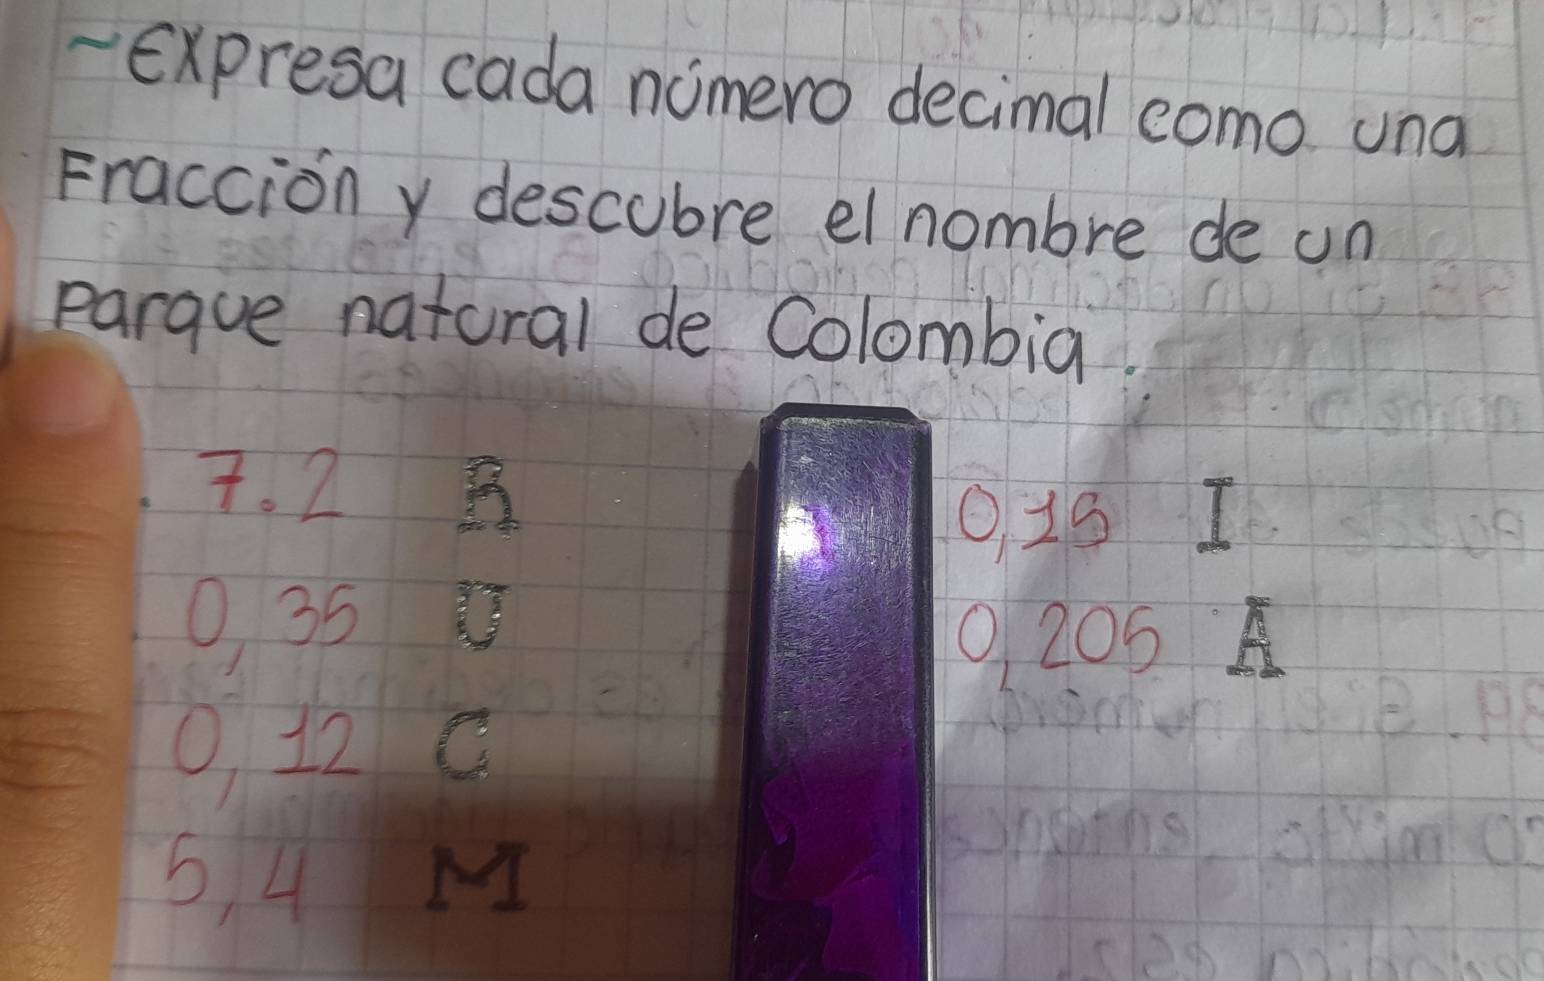 ~Expresa cada número decimal como una
Fracción y descubre el nombre de un
parque natural de Colombia.
. 7.2 R 0,15 I
. 0,35 U 0,205 A
0,12 C
5,4 M